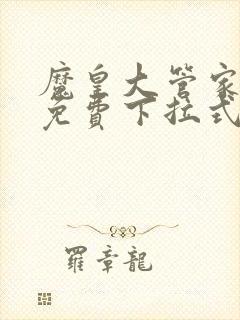 魔皇大管家
免費下拉式
羅章龍